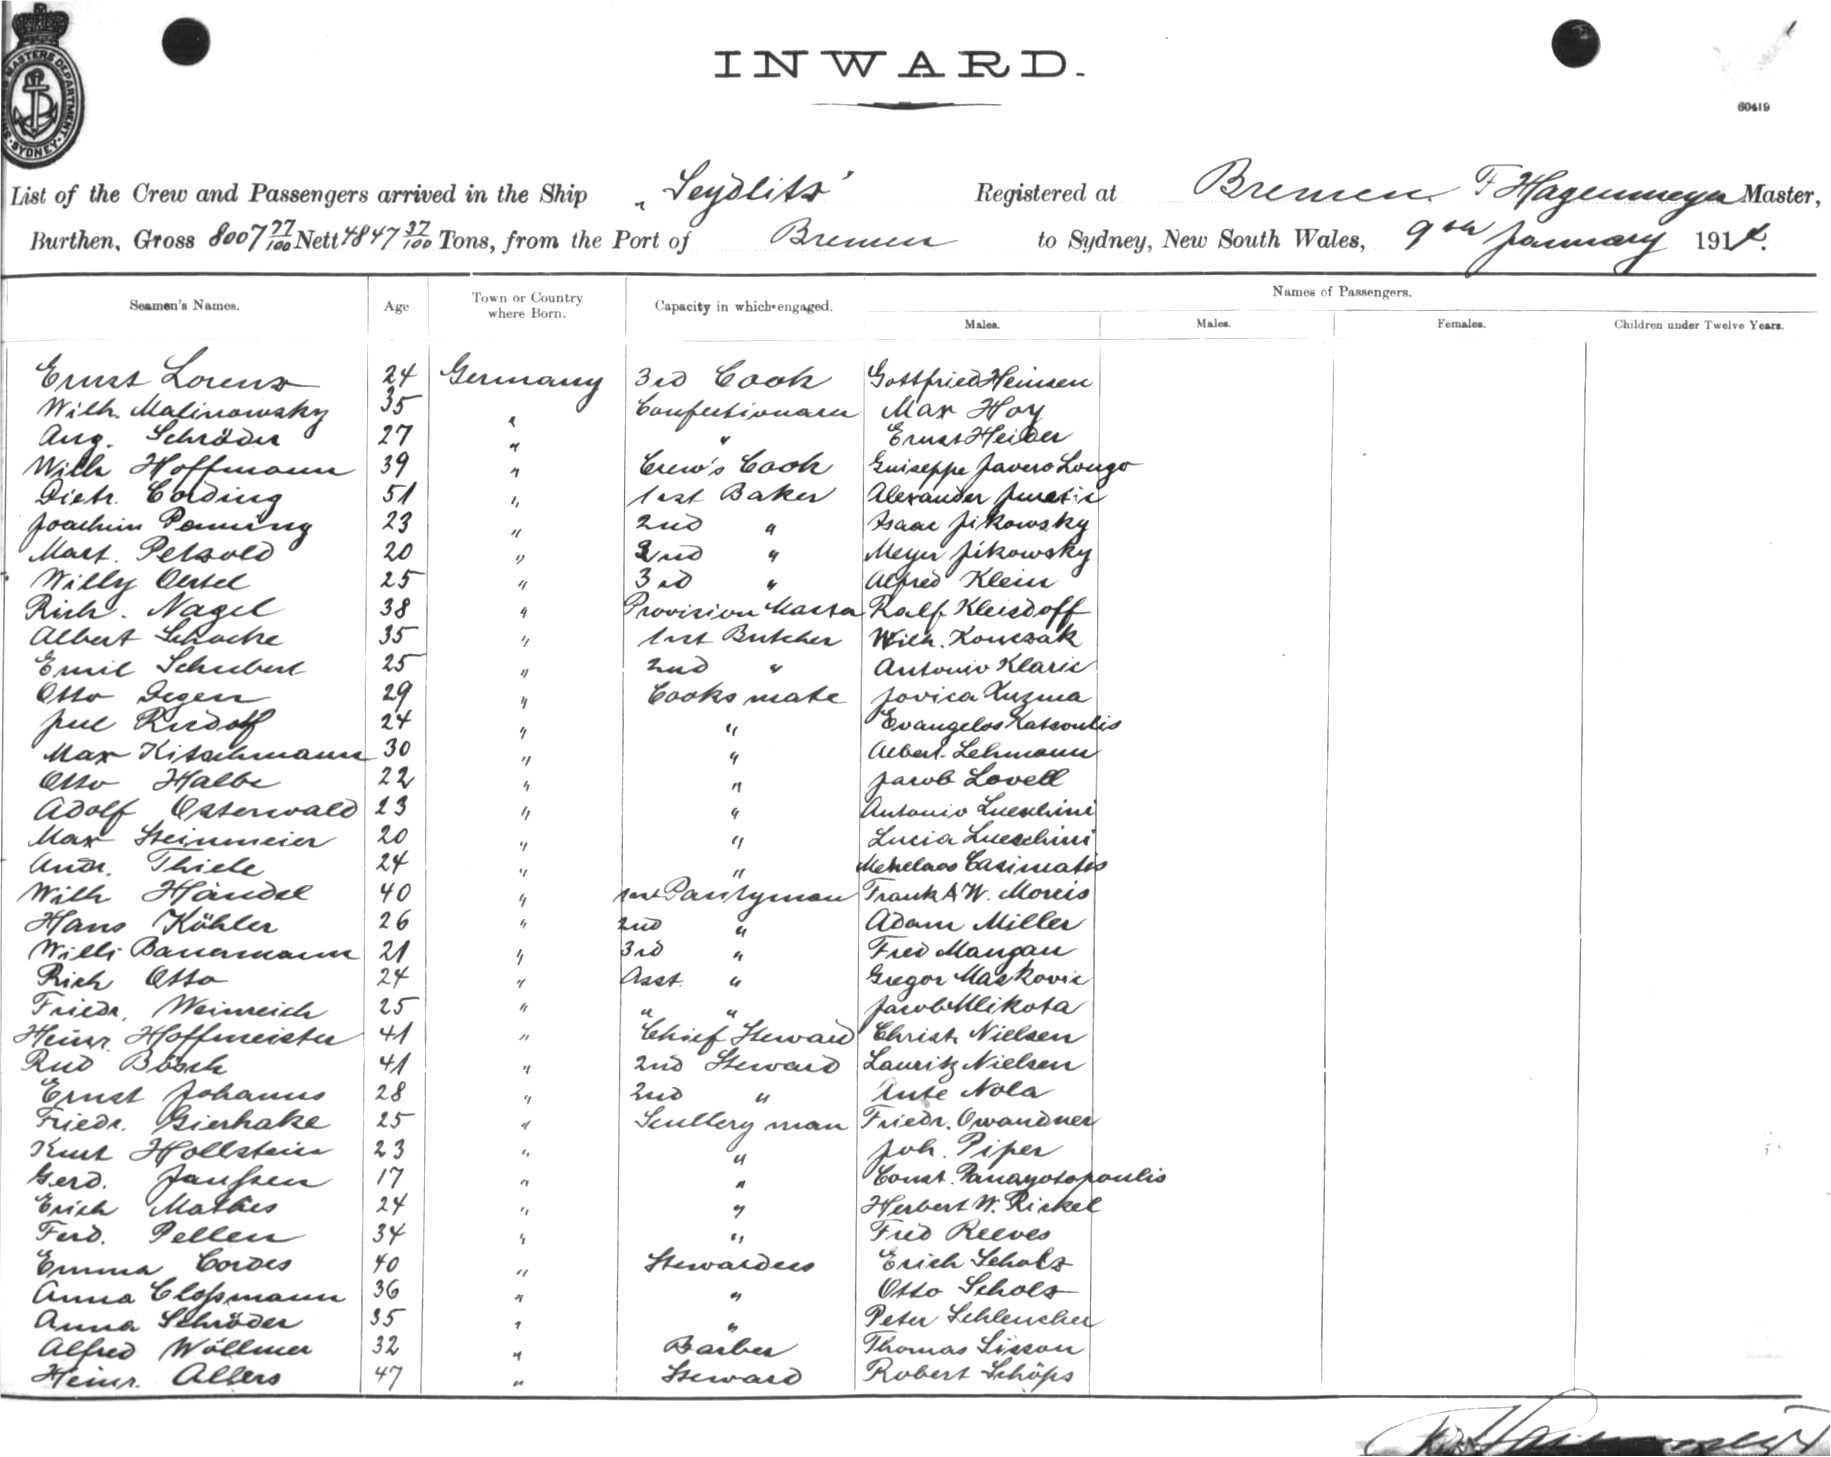 INWARD.
60419
MASTERS DEPARTMENT SYDNEY
List of the Crew and Passengers arrived in the Ship "Seydlitz" Registered at Bremen. F Hagenmeyer Master,
Burthen, Gross 8007 77/100 Nett 4847 37/100 Tons, from the Port of Bremen to Sydney, New South Wales, 9th January 1914.
Seamen's Names. Age Town or Country where Born. Capacity in which engaged. Names of Passengers.
Males. Males. Females. Children under Twelve Years.
Ernst Lorenz 24 Germany 3rd Cook Gottfried Heinsen
Wilh. Malinowsky 35 " Confectionarer Max Hoy
Aug. Schröder 27 " " Ernst Heider
Wilh Hoffmann 39 " Crew's Cook Guiseppe Javero Longo
Dietr. Cording 51 " 1st Baker Alexander
Joachim 23 " 2nd " Isaac Jikowsky
Mart. Petzold 20 " 2nd " Meyer Jikowsky
Willy Oertel 25 " 3rd " Alfred Klein
Rich. Nagel 38 " Provision Master Ralf Kleisdoff
Albert Schacke 35 " 1st Butcher Wilh. Konczak
Emil Schubert 25 " 2nd " Antonio Klaric
Otto Degen 29 " Cooks mate Jovica Kuzma
Jul Rudolf 24 " " Evangelos Katsoulis
Max Kitschmann 30 " " Albert Lehmann
Otto Halbe 22 " " Jacob Lovell
Adolf Osterwald 23 " " Antonio Lueschini
Max Steinmeier 20 " " Lucia Lueschini
Andr. Thiele 24 " " Menelaos Casimatis
Wilh Händel 40 " 1st Pantryman Frank A W. Morris
Hans Köhler 26 " 2nd " Adam Miller
Willi Bauermann 21 " 3rd " Fred Mangan
Rich Otto 24 " Asst. " Gregor Maskovic
Friedr. Weinreich 25 " " " Jacob Mlikota
Heinr. Hoffmeister 41 " Chief Steward Christ. Nielsen
Rud Bösch 41 " 2nd Steward Lauritz Nielsen
Ernst Johanns 28 " 2nd " Ante Nola
Friedr. Gierhake 25 " Scullery man Friedr. Owandner
Kurt Hollstein 23 " " Joh. Piper
Gerd. Janssen 17 " " Const. Panayotopoulis
Erich Mathes 24 " " Herbert W. Rickel
Ferd. Pellen 34 " " Fred Reeves
Emma Cordes 40 " Stewardess Erich Scholz
Anna Cloßmann 36 " " Otto Scholz
Anna Schröder 35 " " Peter Schleucher
Alfred Wöllmer 32 " Barber Thomas Sisson
Heinr. Albers 47 " Steward Robert Schöps